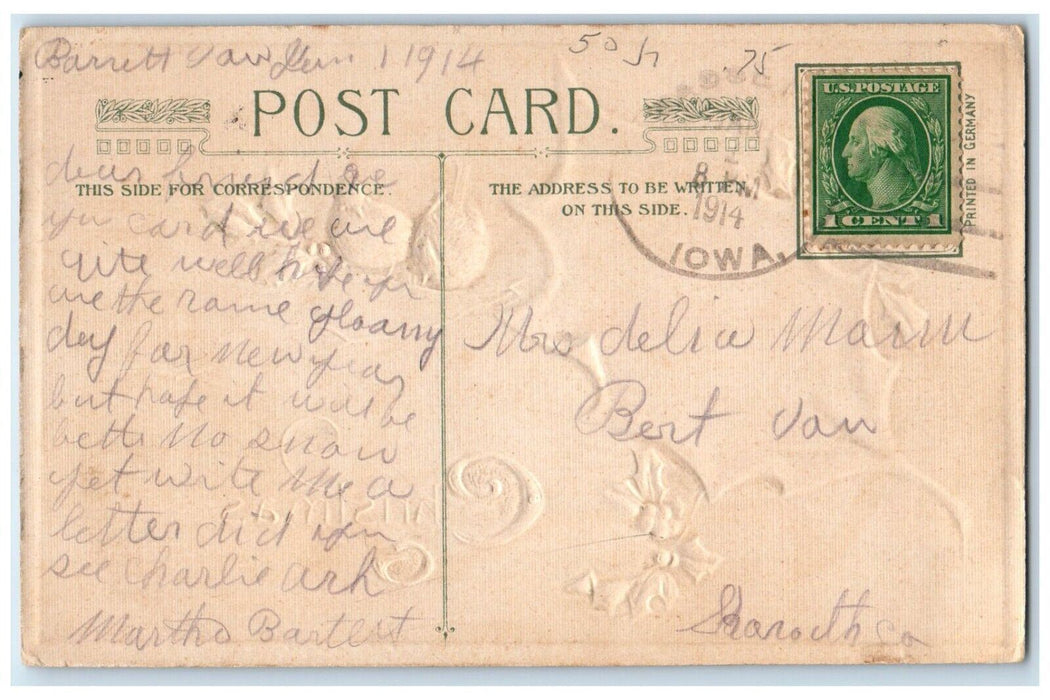 Jan 1 1914
50
.75
POST CARD.
THIS SIDE FOR CORRESPONDENCE.
THE ADDRESS TO BE WRITTEN
ON THIS SIDE.
8
M
1914
IOWA.
U.S. POSTAGE
1 CENT 1
PRINTED IN GERMANY
dear friend
you card we are
qite well hope you
are the same gloomy
day for new year
but hope it will be
bette no snow
yet write me a
letter did you
see Charlie
Martha Bartlett
Mrs delia Mann
Bert
co